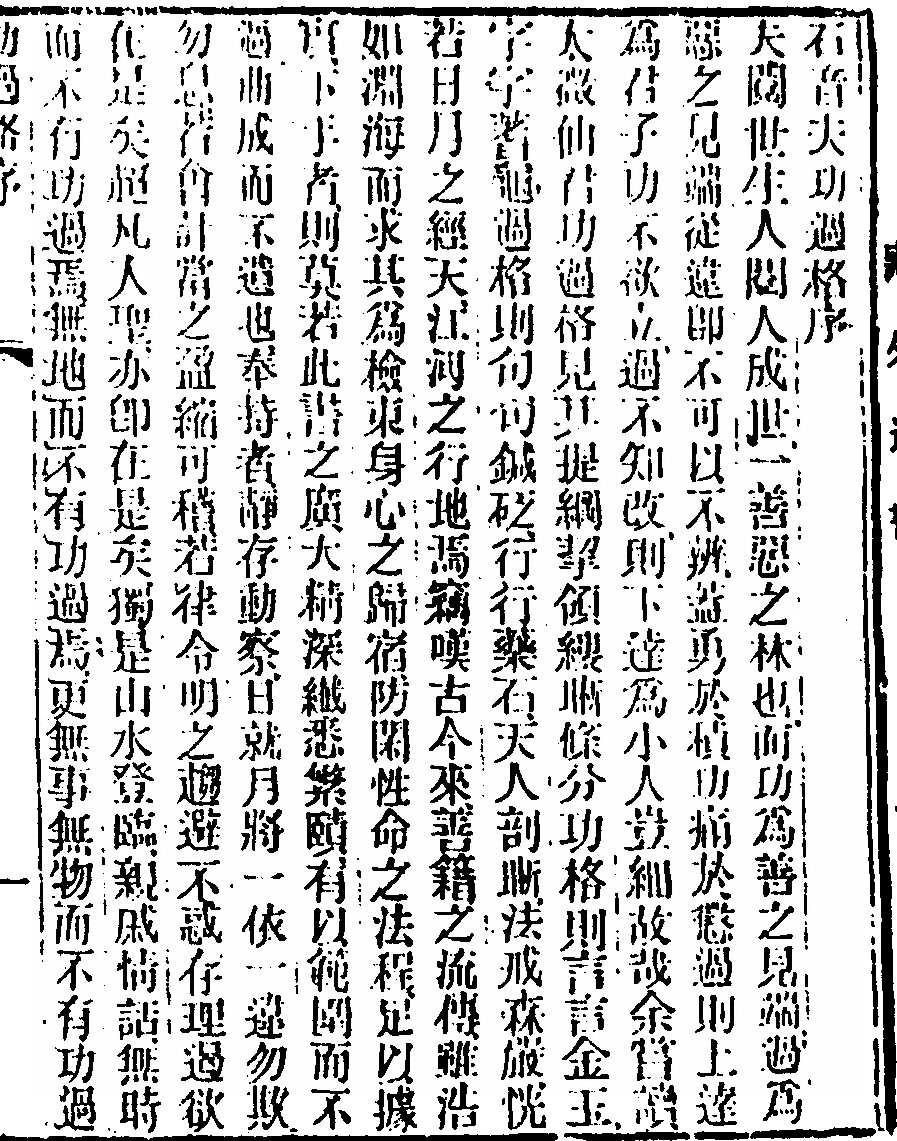 石音夫功過格序
夫閱世生人閱人成世一善惡之林也而功為善之見端過為
惡之見端從違卽不可以不辨蓋勇於積功痛於懲過則上達
為君子功不欲立過不知改則下達為小人豈細故哉余嘗讀
太微仙君功過格見其提綱挈領縷晰條分功格則言言金玉
字字蓍龜過格則句句鍼砭行行藥石天人剖晰法戒森嚴恍
若日月之經天江河之行地焉竊嘆古今來善籍之流傳雖浩
如淵海而求其為檢束身心之歸宿防閑性命之法程足以據
實下手者則莫若此書之廣大精深纖悉繁賾有以範圍而不
過曲成而不遺也奉持者靜存動察日就月將一依一違勿欺
勿怠若會計當之盈縮可稽若律令明之趨避不惑存理遏欲
在是矣超凡入聖亦卽在是矣獨是山水登臨親戚情話無時
而不有功過焉無地而不有功過焉更無事無物而不有功過
功過格序
一